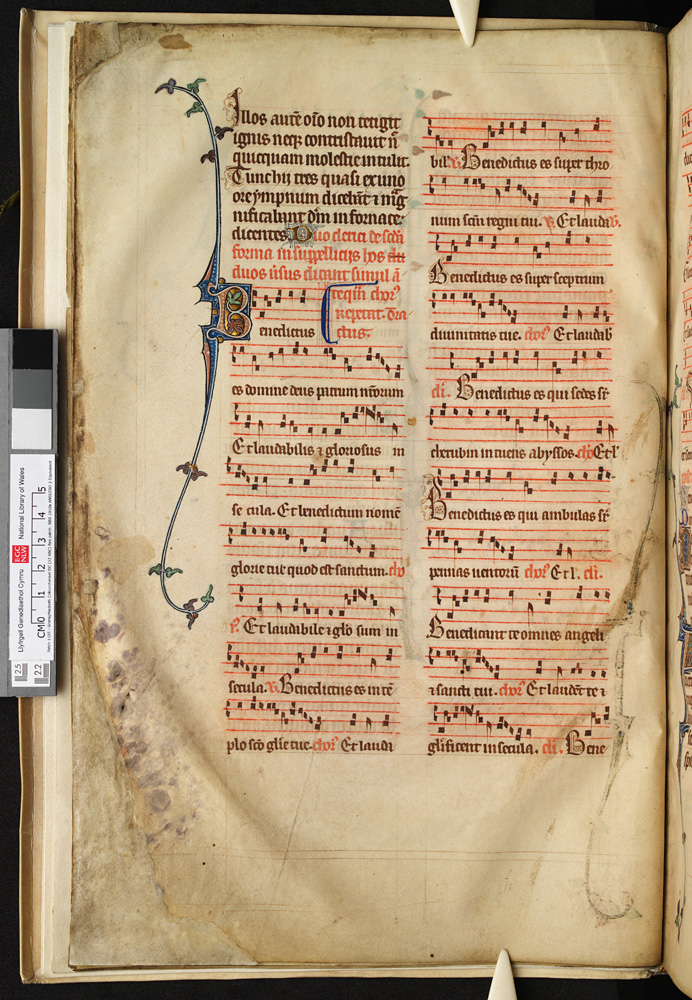 Illos aute oıo non tetigit
ignis neq; contristauit n
quicquam molestie intulit.
Tunc hij tres quasi ex uno
ore ympnum dicebāt ⁊ mag
nificabant dm̄ in fornace:
dicentes Duo clerici de scda
forma in suppelliciis hos
duos ūsus dicant simul
chor⁹
repetat. Tra
ctus.
enedictus
es domine deus patrum nr̄orum
Et laudabilis ⁊ gloriosus in
se cula. Et benedictum nomē
glorie tue quod est sanctum. cho
r⁹. Et laudabile ⁊ glo sum in
secula. v. Benedictus es in tē
plo sco glīe tue. chor⁹ Et lauda
bil. v. Benedictus es super thro
num scm regni tui. Et laudab.
Benedictus es super sceptrum
diuinitatis tue. chor⁹ Et laudab
cli. Benedictus es qui sedes sr̄
cherubin intuens abyssos. cho Et l
Benedictus es qui ambulas sr̄
pennas uentorū chor⁹ Et l. cli.
Benedicant te omnes angeli
⁊ sancti tui. chor⁹ Et laudēt te ⁊
glīficent in secula. cli. Bene
Llyfrgell Genedlaethol Cymru
National Library of Wales
EGC
NLW
CM 0 1 2 3 4 5
2.5
2.2